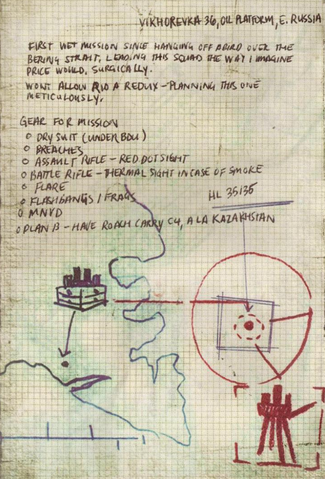 VIKHOREVKA 36, OIL PLATFORM, E. RUSSIA
FIRST WET MISSION SINCE HANGING OFF A BIRD OVER THE
BERING STRAIT, LEADING THIS SQUAD THE WAY I IMAGINE
PRICE WOULD, SURGICALLY.
WON'T ALLOW RIO A REDUX - PLANNING THIS ONE
METICULOUSLY.
GEAR FOR MISSION
DRY SUIT (UNDER BDU)
BREACHES
ASSAULT RIFLE - RED DOT SIGHT
BATTLE RIFLE - THERMAL SIGHT IN CASE OF SMOKE
FLARE
FLASHBANGS / FRAGS
MNVD
PLAN B - HAVE ROACH CARRY C4, A LA KAZAKHSTAN
HL 35135